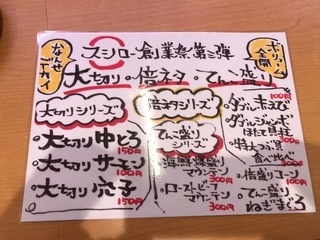 なんせデカイ
スシロー創業祭第三弾
ボリューム全開
大切り・倍ネタ・てんこ盛り
大切りシリーズ
・大切り中とろ 150円
・大切りサーモン 100円
・大切り穴子 150円
倍ネタシリーズ
てんこ盛りシリーズ
・海鮮爆盛りマウンテン 300円
・ローストビーフマウンテン 300円
100円
・ダブル赤えび
・ダブルジャンボほたて貝柱 300円
・特大つぶ貝食べ比べ 300円
・倍盛りコーン 100円
・てんこ盛りねぎまぐろ